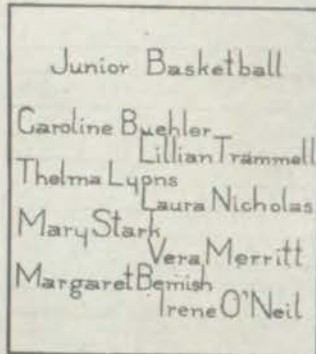 Junior Basketball
Caroline Buehler
Lillian Trammell
Thelma Lyons
Laura Nicholas
Mary Stark
Vera Merritt
Margaret Bemish
Irene O'Neil